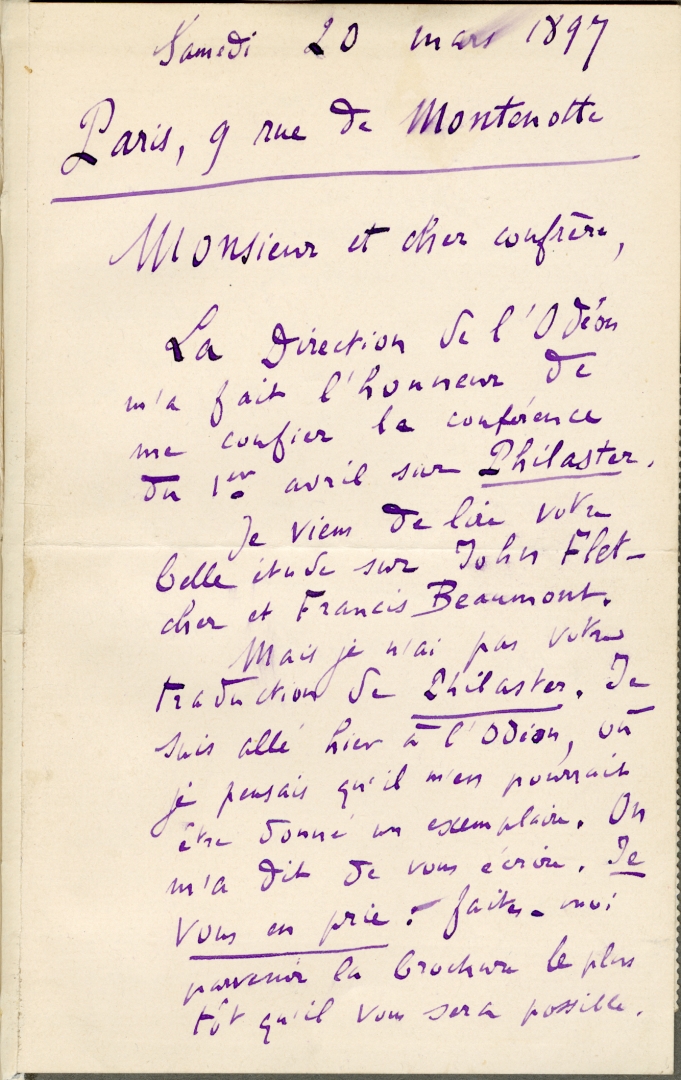 Samedi 20 mars 1897
Paris, 9 rue de Montenotte
Monsieur et cher confrère,
La Direction de l'Odéon
m'a fait l'honneur de
me confier la conférence
du 1er avril sur Philaster.
Je viens de lire votre
belle étude sur John Flet-
cher et Francis Beaumont.
Mais je n'ai pas votre
traduction de Philaster. Je
suis allé hier à l'Odéon, où
je pensais qu'il m'en pourrait
être donné un exemplaire. On
m'a dit de vous écrire. Je
vous en prie : faites-moi
parvenir la brochure le plus
tôt qu'il vous sera possible.